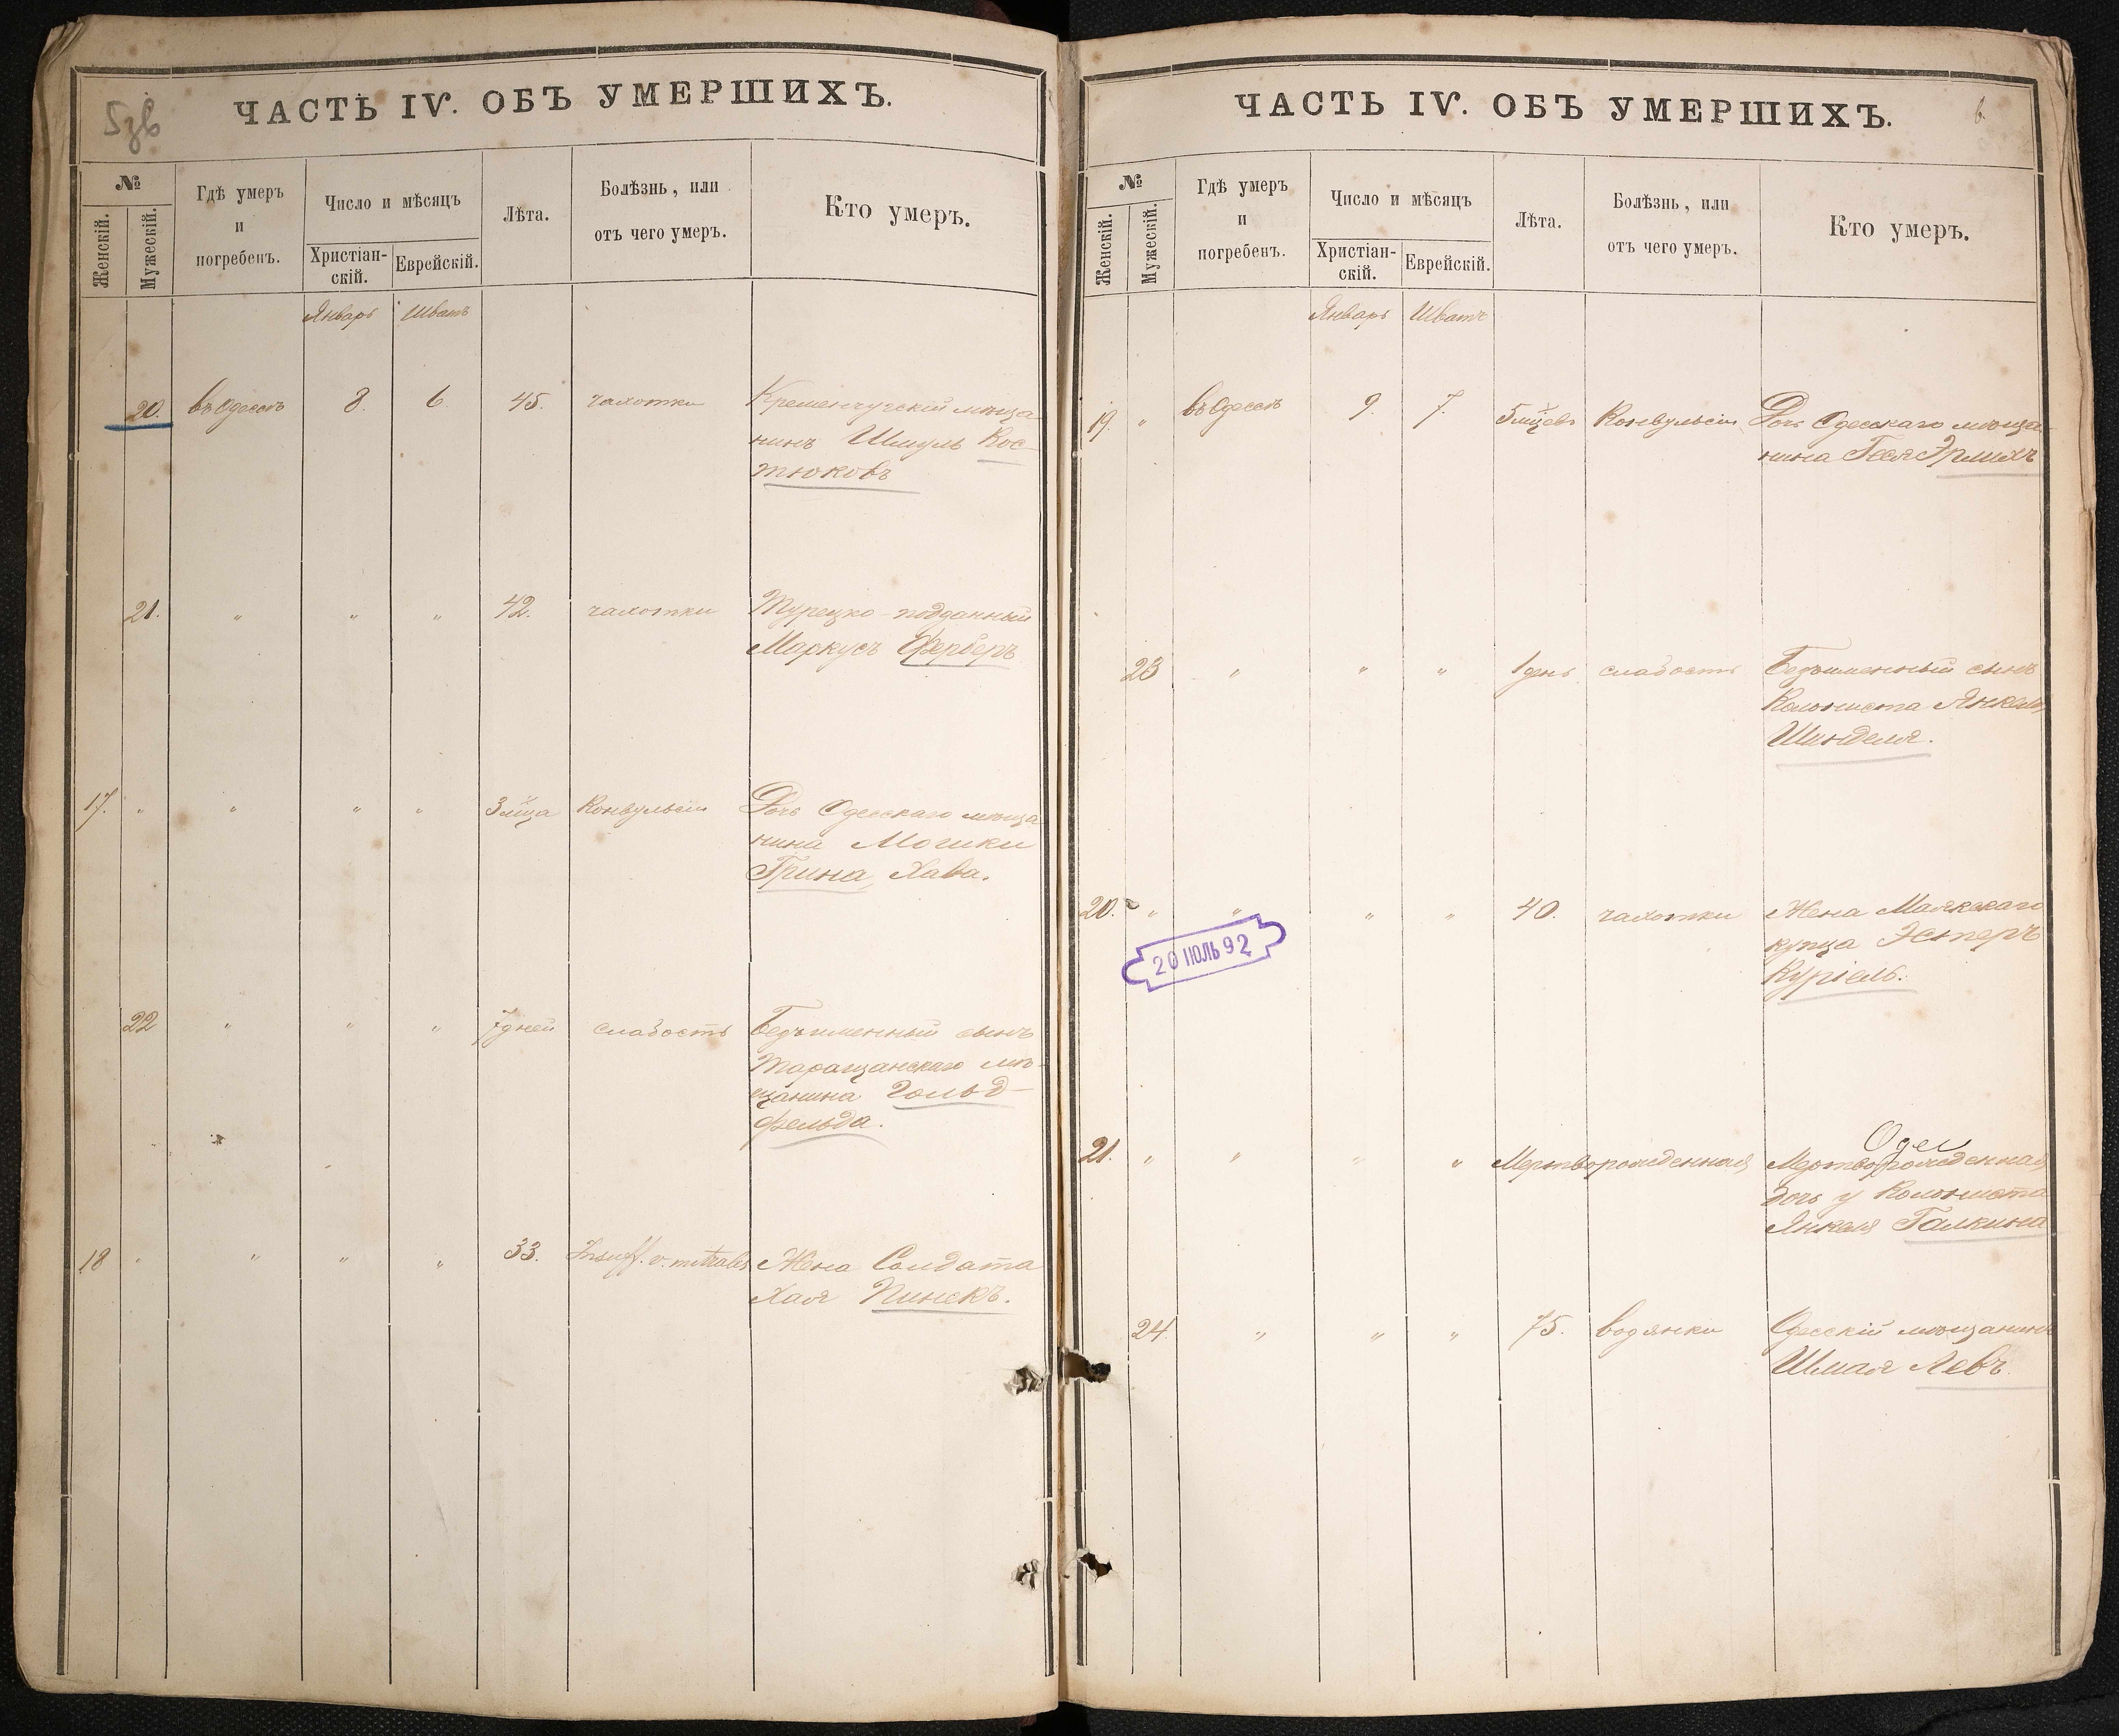 ЧАСТЬ IV. ОБЪ УМЕРШИХЪ.
№
Женскій.
Мужескій.
Гдѣ умеръ
и
погребенъ.
Число и мѣсяцъ
Христіан-
скій.
Еврейскій.
Лѣта.
Болѣзнь, или
отъ чего умеръ.
Кто умеръ.
Январь Шватъ
20. въ Одессѣ 8. 6 45. чахотки Кременчугскій мѣща
нинъ Шмуль Кос-
тюковъ
21. " " " 42. чахотки Турецко-подданный
Маркусъ Ферберъ
17. " " " " 3 мѣца Конвульсіи Дочь Одесскаго мѣща
нина Мошки
Грина, Хава.
22 " " " 7 дней слабость Безъименный сынъ
Таращанскаго мѣ-
щанина Гольд-
фельда.
18 " " " " 33. Insuff. v. mitralis Жена Солдата
Хая Пинскъ.
ЧАСТЬ IV. ОБЪ УМЕРШИХЪ.
6.
№
Женскій.
Мужескій.
Гдѣ умеръ
и
погребенъ.
Число и мѣсяцъ
Христіан-
скій.
Еврейскій.
Лѣта.
Болѣзнь, или
отъ чего умеръ.
Кто умеръ.
Январь Шватъ
19. " въ Одессѣ 9. 7. 5 мѣцевъ Конвульсіи Дочь Одесскаго мѣща-
нина Геся Эрлихъ
23 " " " 1 день слабость Безъименный сынъ
Колониста Янкеля
Шинделя.
20. " " " " 40. чахотки Жена Маякскаго
купца Эстеръ
Куріель.
20 ІЮЛЬ 92
Одес
21. " " " " Мертворожденная Мертворожденная
дочь у Колониста
Янкеля Галкина
24. " " " 75. водянки Одесскій мѣщанинъ
Шмая Левъ.